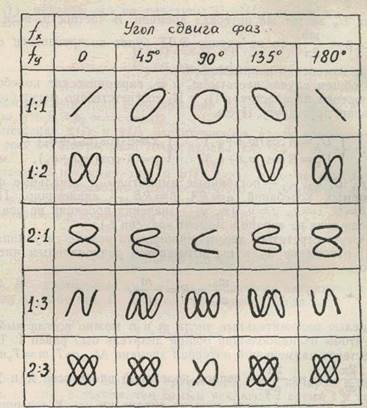 fx/fy Угол сдвига фаз
0 45° 90° 135° 180°
1:1
1:2
2:1
1:3
2:3